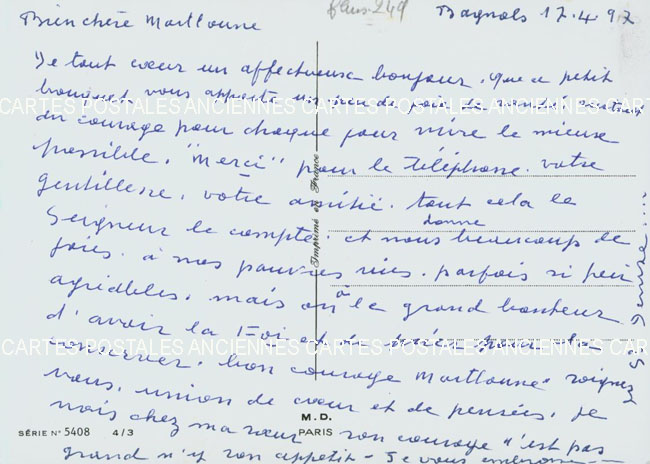 fleurs 249
Bagnols 17.4.97
Bien chère Marllonne
De tout cœur un affectueux bonjour. que ce petit
bouquet vous apporte un
CARTES POSTALES ANCIENNES CARTES POSTALES ANCIENNES CARTES POSTALES ANCIENNES
du courage pour chaque jour vivre le mieux
possible. "Merci" pour le téléphone. votre
gentillesse, votre amitié. tout cela le
Seigneur le compte. et nous donne beaucoup de
joies. à nos pauvres vies. parfois si peu
agréables. mais on a le grand bonheur
d'avoir la Foi et de
CARTES POSTALES ANCIENNES CARTES POSTALES ANCIENNES CARTES POSTALES ANCIENNES
conserver. bon courage Marllonne soignez
vous. union de cœur et de pensées. je
vais chez ma sœur son courage n'est pas
grand n'y son appetit - Je vous embrasse
Imprimé en France
M.D.
PARIS
SÉRIE N° 5408 4/3